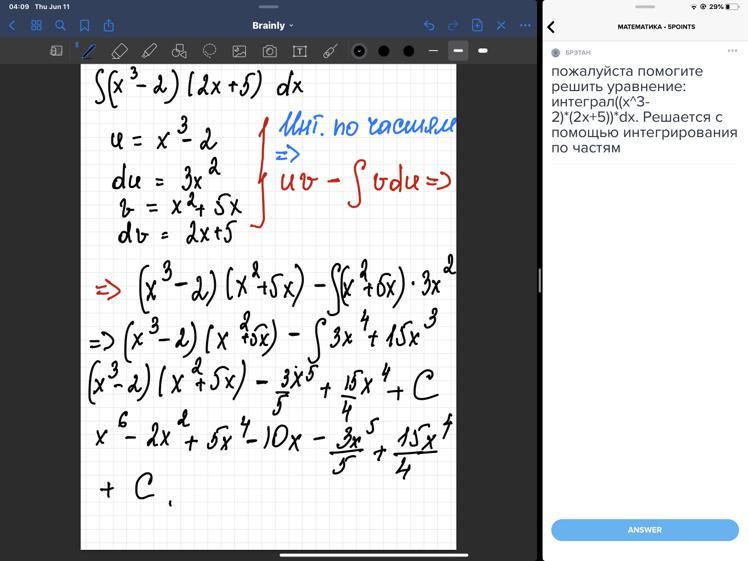 04:09 Thu Jun 11
29%
Brainly
∫(x³-2)(2x+5) dx
u = x³-2
du = 3x²
v = x²+5x
dv = 2x+5
Инт. по частям
=>
uv - ∫vdu =>
=> (x³-2)(x²+5x) - ∫(x²+5x)·3x²
=> (x³-2)(x²+5x) - ∫3x⁴+15x³
(x³-2)(x²+5x) - 3x⁵/5 + 15x⁴/4 + C
x⁶ - 2x² + 5x⁴ - 10x - 3x⁵/5 + 15x⁴/4
+ C.
МАТЕМАТИКА • 5POINTS
БРЭТАН
пожалуйста помогите
решить уравнение:
интеграл((x^3-
2)*(2x+5))*dx. Решается с
помощью интегрирования
по частям
ANSWER